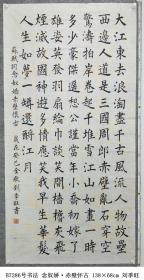 大江東去浪淘盡千古風流人物故壘
西邊人道是三國周郎赤壁亂石穿空
驚濤拍岸捲起千堆雪江山如畫一時
多少豪傑遙想公瑾當年小喬初嫁了
雄姿英發羽扇綸巾談笑間檣櫓灰飛
煙滅故國神遊多情應笑我早生華髮
人生如夢一尊還酹江月
蘇軾詞念奴嬌赤壁懷古 癸巳金秋劉季旺書
B7286号书法 念奴娇·赤壁怀古 138×68cm 刘季旺